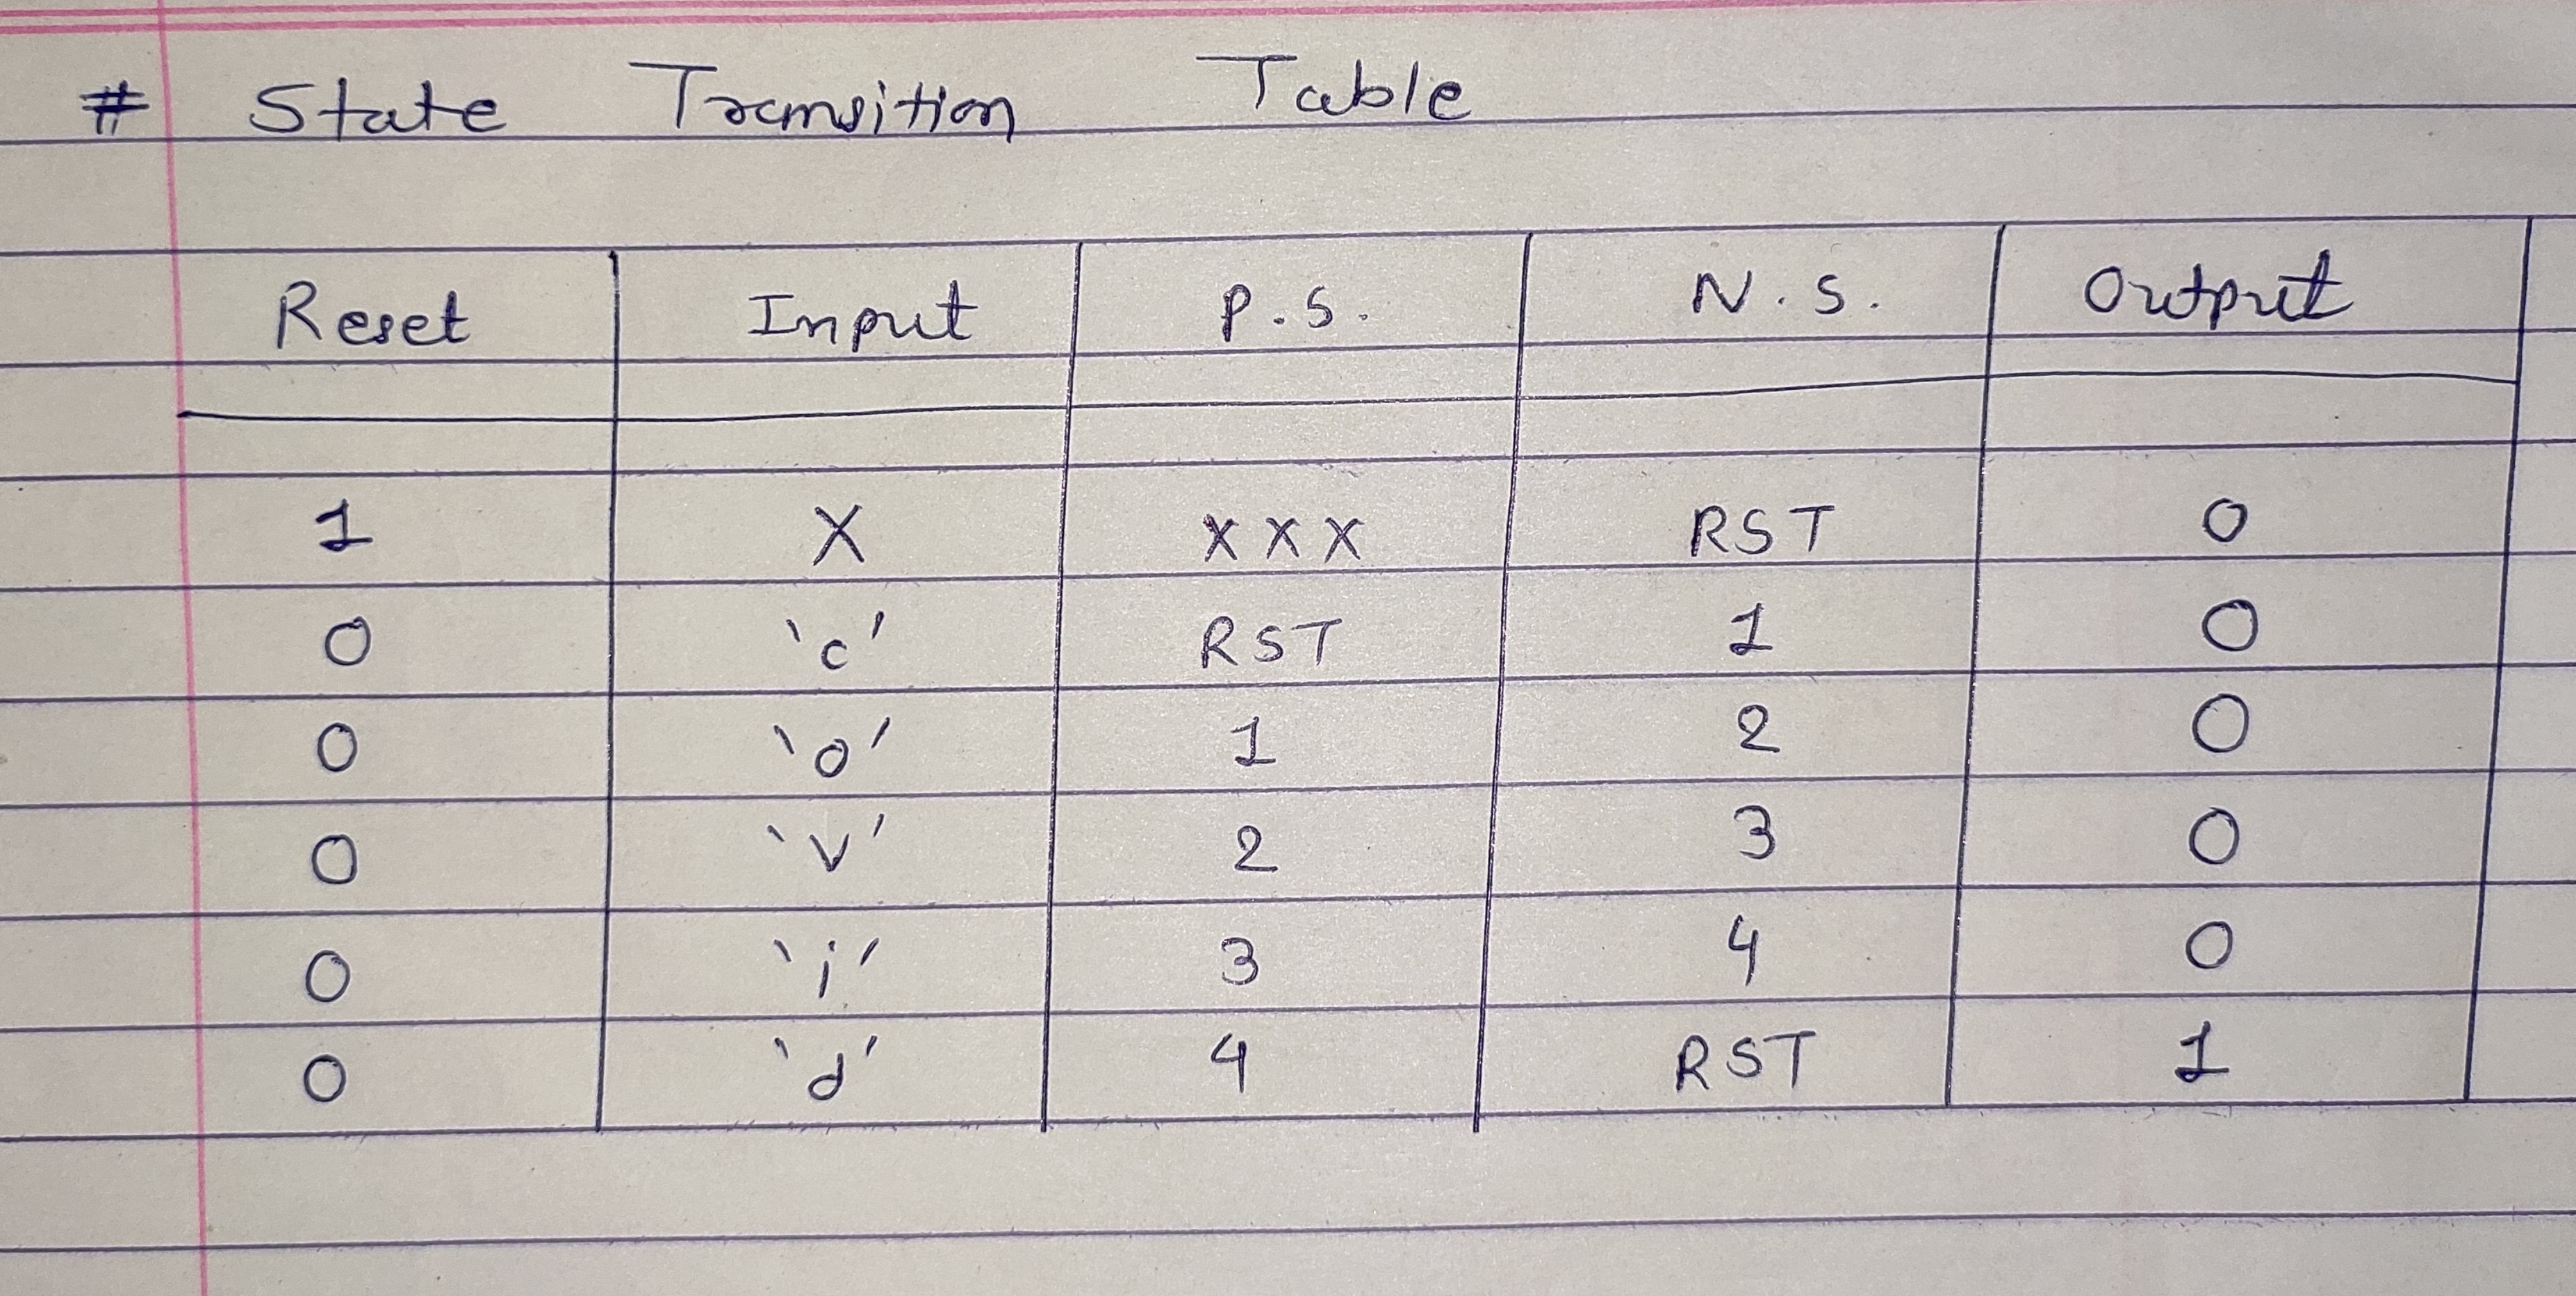 # State Transition Table
Reset Input P.S. N.S. Output
1 X XXX RST 0
0 'c' RST 1 0
0 'o' 1 2 0
0 'v' 2 3 0
0 'i' 3 4 0
0 'd' 4 RST 1